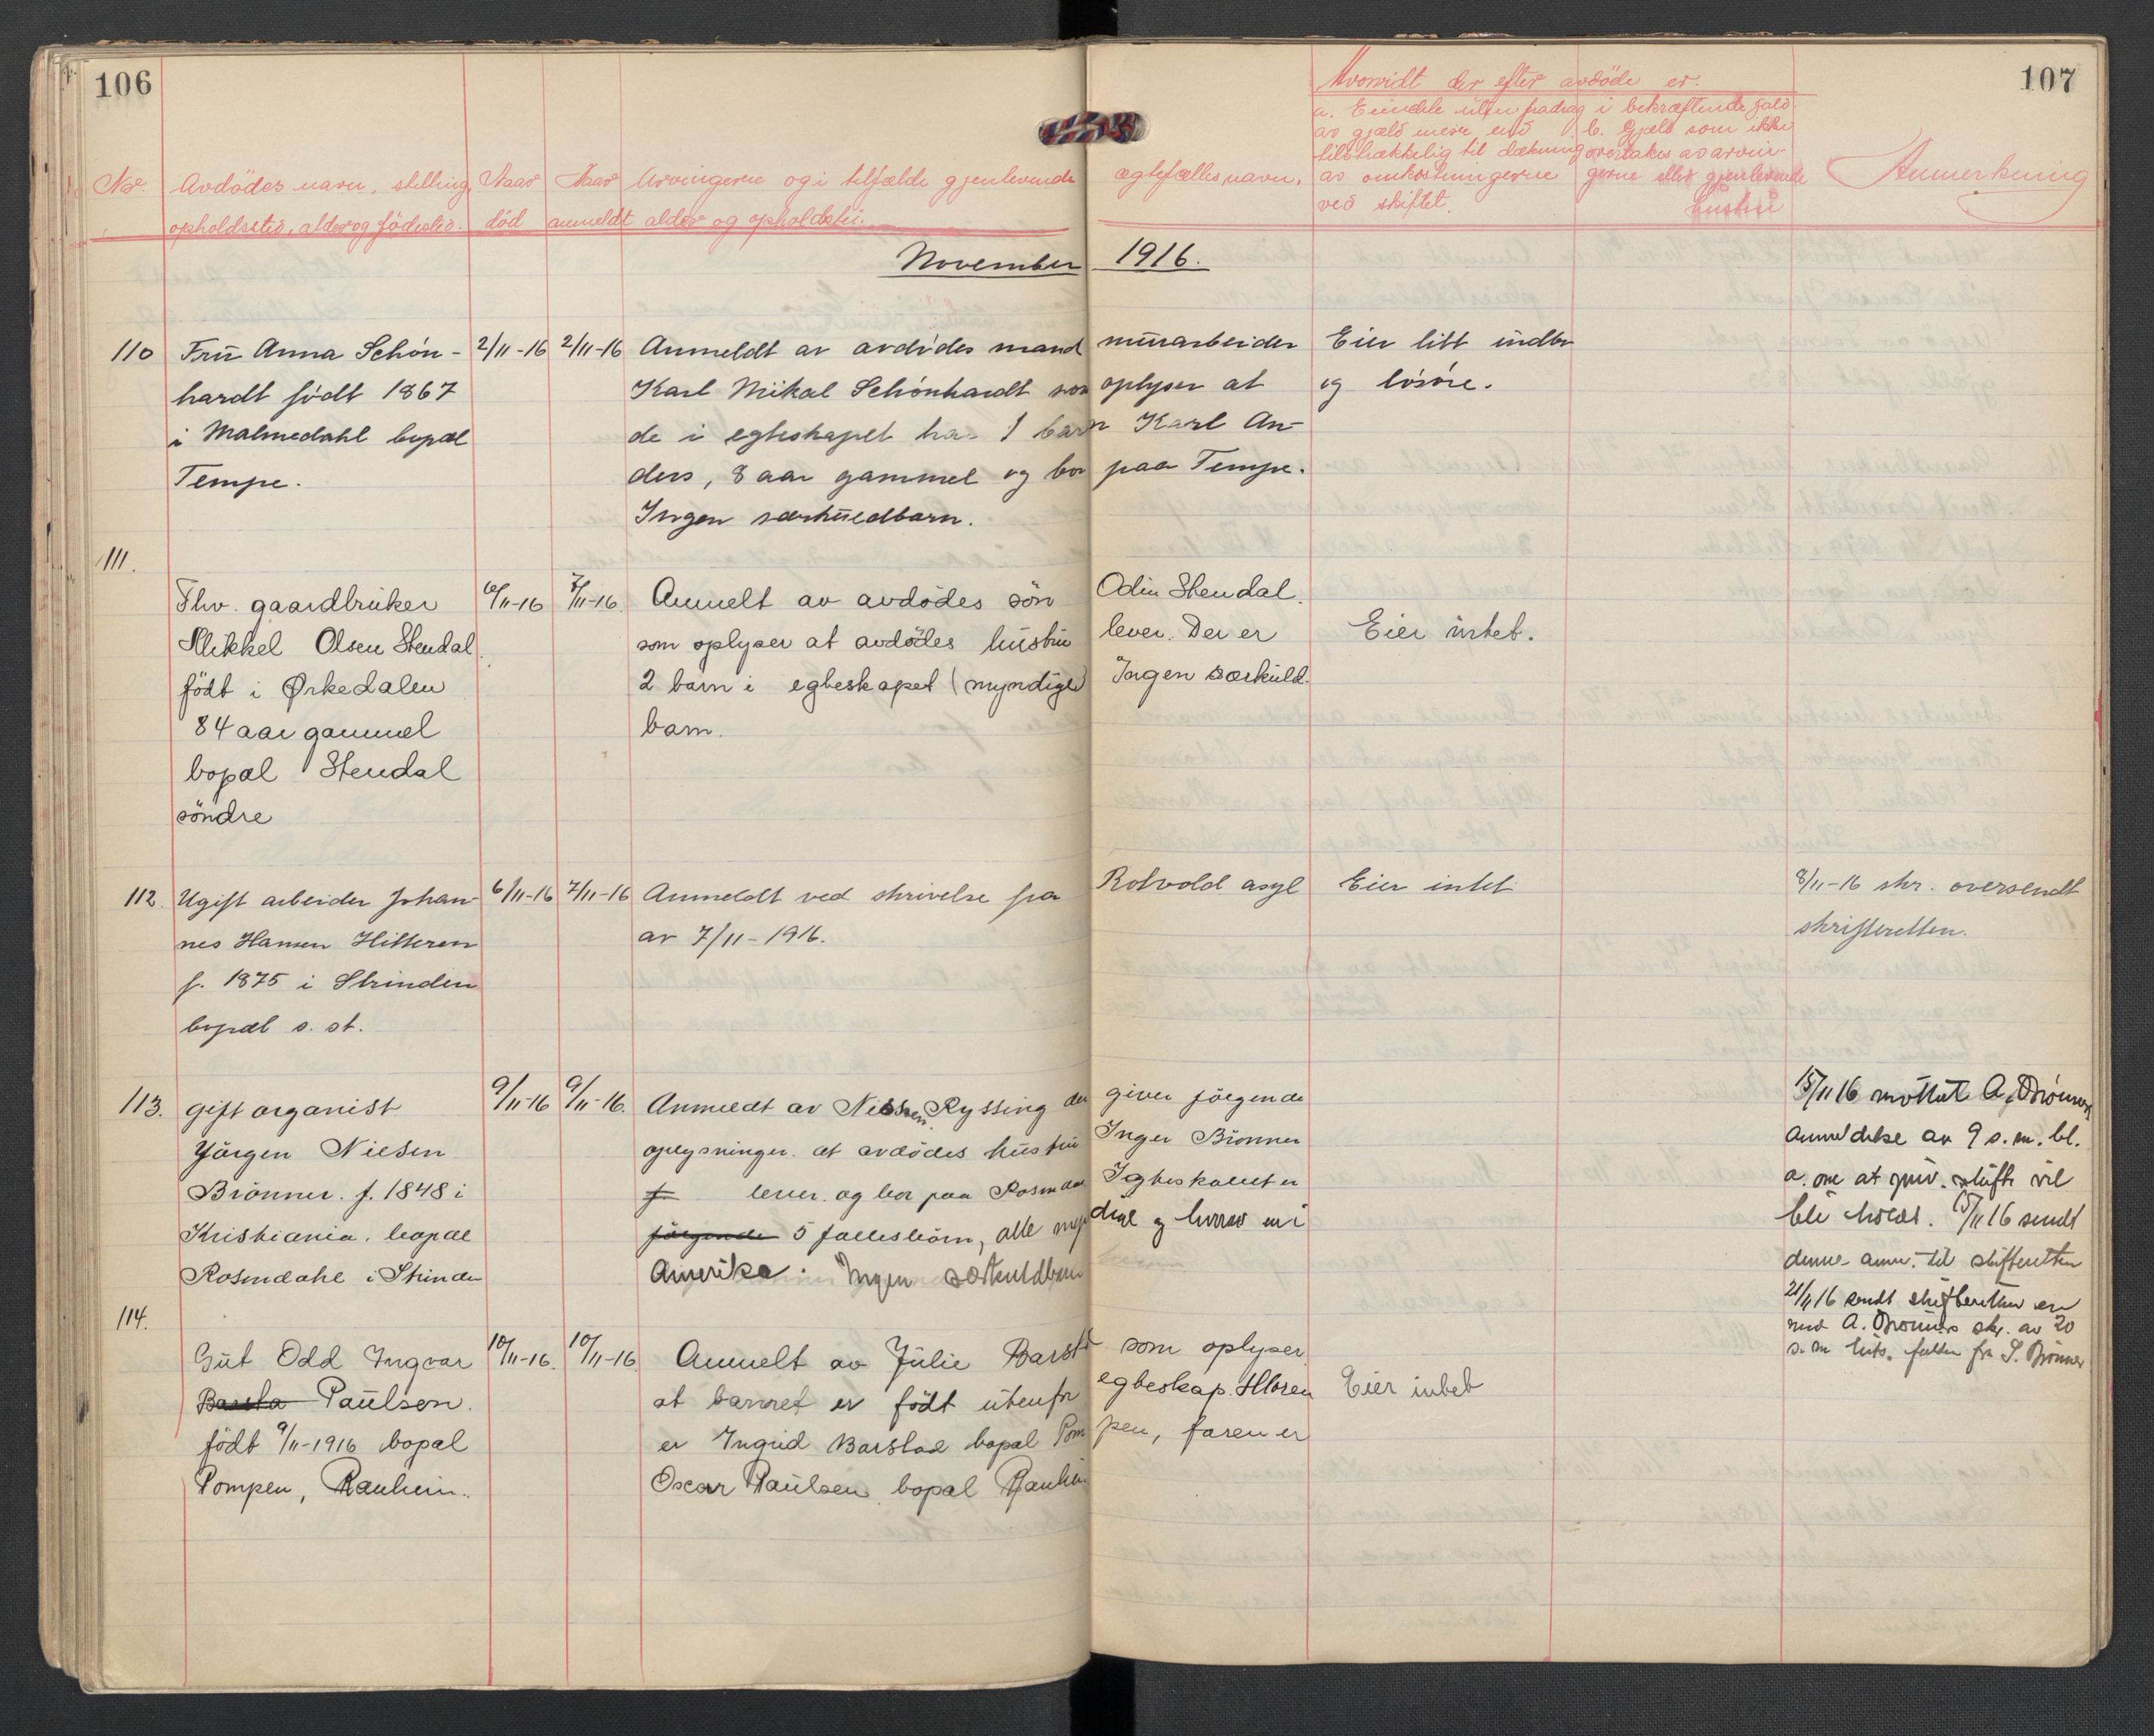 106
107
Hvorvidt der efter avdöde er.
a. Eiendele uten fradrag i bekræftende fald
av gjæld mere end b. Gjæld som ikke
tilstrækkelig til dækning overtakes av arvin-
No. Avdödes navn, stilling Naar Naar Arvingerne og i tilfælde gjenlevende ægtefælles navn, av omkostningerne gerne eller gjenlevende Anmerkning
opholdssted, alder og födested. död anmeldt alder og opholdsted. ved skiftet. hustru
November 1916.
110 Fru Anna Schön- 2/11-16 2/11-16 Anmeldt av avdödes mand murarbeider Eier litt indbo
hardt födt 1867 Karl Mikal Schönhardt som oplyser at og lösöre.
i Malmedahl bopæl de i egteskapet har 1 barn Karl An-
Tempe. ders, 8 aar gammel og bor paa Tempe.
Ingen særkuldbarn.
111.
Fhv. gaardbruker 6/11-16 7/11-16. Anmelt av avdödes sön Odin Stendal.
Mikkel Olsen Stendal som oplyser at avdödes hustru lever. Der er Eier intet.
födt i Ørkedalen 2 barn i egteskapet (myndige) Ingen særkuld.
84 aar gammel barn.
bopæl Stendal
söndre
112. Ugift arbeider Johan- 6/11-16 7/11-16 Anmeldt ved skrivelse fra Rotvold asyl Eier intet 8/11-16 skr. oversendt
nes Hansen Hitteren av 7/11-1916. skrifteretten.
f. 1875 i Strinden
bopæl s. st.
113. gift organist 9/11-16 9/11-16. Anmeldt av Nissen Ryssing der giver fölgende 15/11 16 mottat A. Brönner
Jörgen Niesen oplysninger. at avdödes hustru Inger Brönner Anmeldelse av 9 s.m. bl.
Brönner. f. 1848 i lever. og bor paa Rosendal I gteskabet er a. om at priv. skifte vil
Kristiania. bopæl fölgende 5 fællesbörn, alle myndige og hvorav en i bli holdt. 15/11 16 sendt
Rosendahl i Strinden Amerika. Ingen særkuldbarn denne anm. til skifteretten
21/11 16 sendt skifteretten en
114. med A. Brönners skr. av 20
Gut Odd Ingvar 10/11-16. 10/11-16. Anmelt av Julie Barstad som oplyser s. m. fra J. Brönner
Barsta Paulsen. at barnet er födt utenfor egteskap. Moren Eier intet
födt 9/11-1916 bopæl er Ingrid Barstad bopæl Pompen, faren er
Pompen, Ranheim. Oscar Paulsen bopæl Ranheim